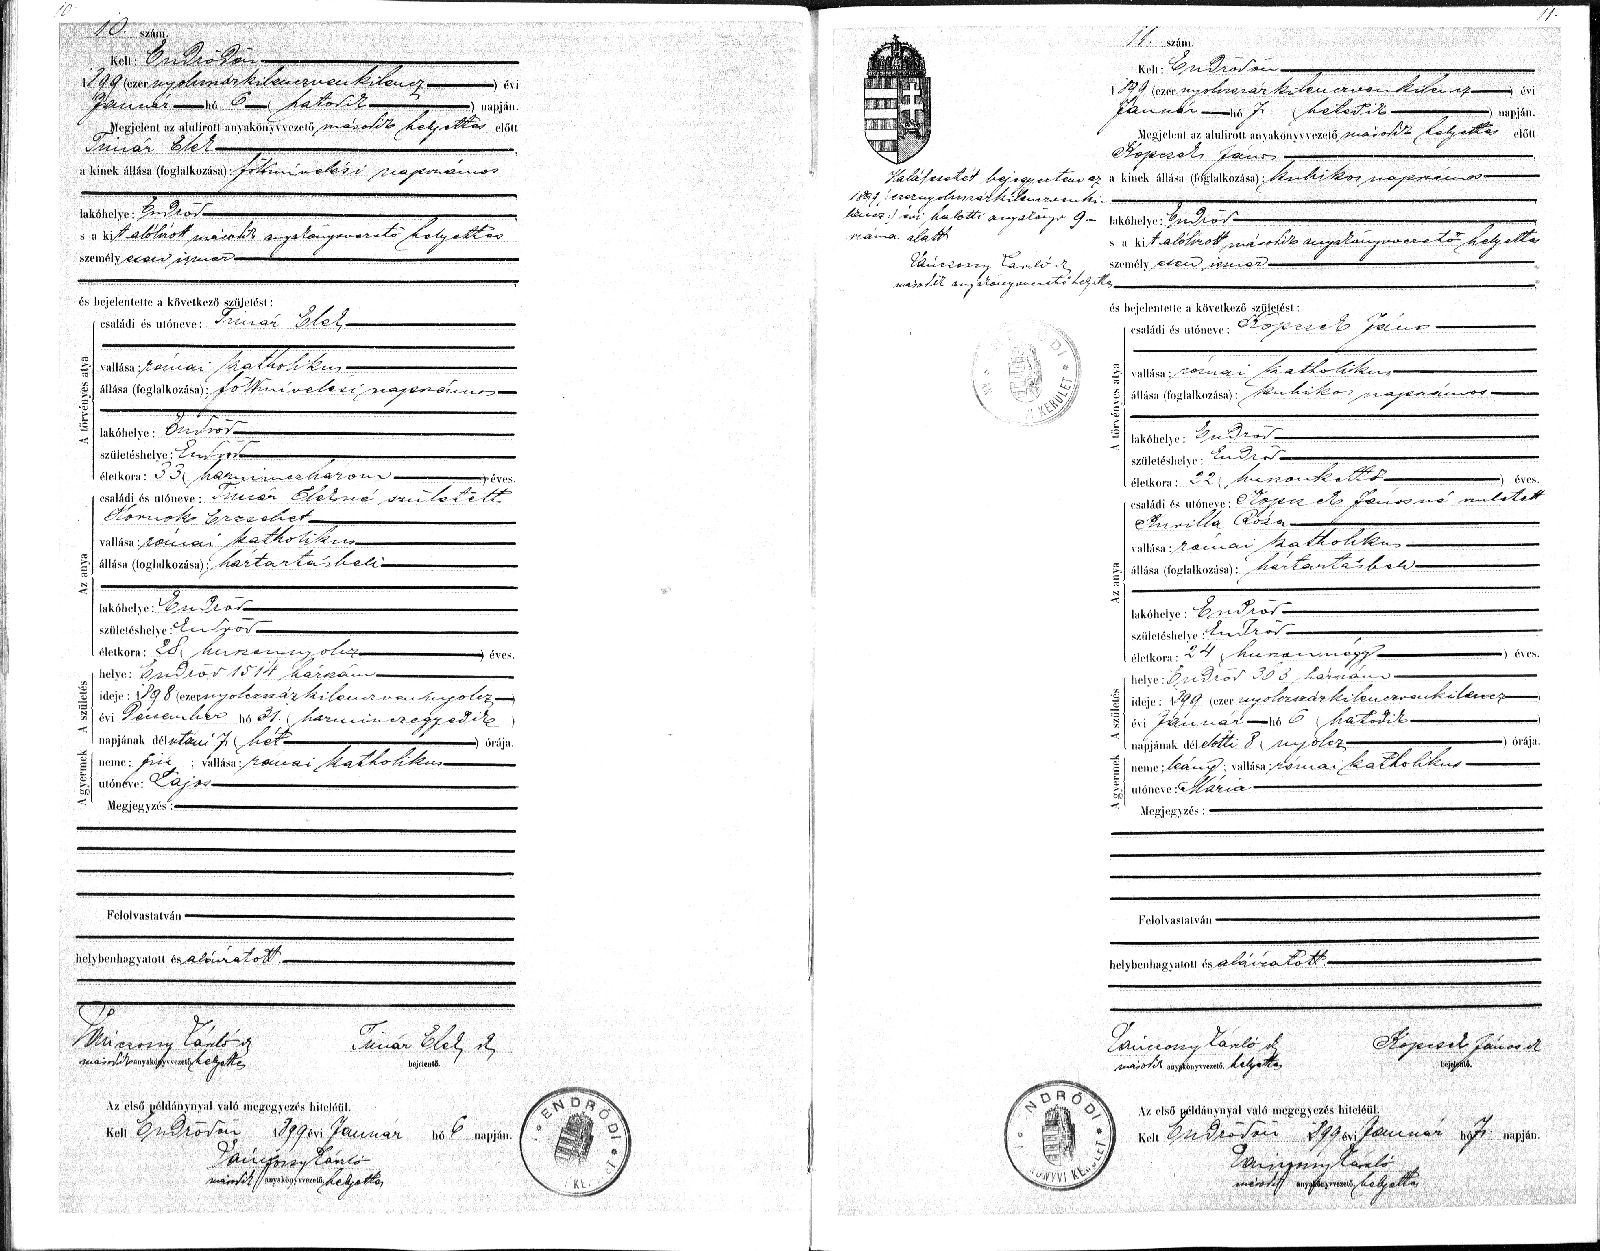 10
10. szám.
Kelt: Endrődön
1899 (ezernyolcszázkilenczvenkilencz) évi
Január hó 6 (hatodik) napján.
Megjelent az alulirott anyakönyvvezető második helyettes előtt
Timár Elek
a kinek állása (foglalkozása): földmivelési napszámos
lakóhelye: Endrőd
s a kit alólirott második anyakönyvvezető helyettes
személyesen ismer
és bejelentette a következő születést:
A törvényes atya
családi és utóneve: Timár Elek
vallása: római katholikus
állása (foglalkozása): földmivelési napszámos
lakóhelye: Endrőd
születéshelye: Endrőd
életkora: 33 (harminczhárom) éves.
Az anya
családi és utóneve: Timár Elekné született
Kornok Erzsébet
vallása: római katholikus
állása (foglalkozása): háztartásbeli
lakóhelye: Endrőd
születéshelye: Endrőd
életkora: 28 (huszonnyolcz) éves.
A születés
helye: Endrőd 1514 házszám
ideje: 1898 (ezernyolcszázkilenczvennyolcz)
évi Deczember hó 31. (harminczegyedik)
napjának délutáni 7 (hét) órája.
A gyermek
neme: fiú; vallása: római katholikus
utóneve: Lajos
Megjegyzés:
Felolvastatván
helybenhagyatott és aláiratott.
Tánczony László
második anyakönyvvezető. helyettes
Timár Elek
bejelentő.
Az első példánynyal való megegyezés hiteléül.
Kelt Endrődön 1899 évi Január hó 6 napján.
Tánczony László
második anyakönyvvezető. helyettes
ENDRŐDI
11.
11. szám.
Kelt: Endrődön
1899 (ezernyolcszázkilenczvenkilencz) évi
Január hó 7 (hetedik) napján.
Megjelent az alulirott anyakönyvvezető második helyettes előtt
Kopcsek János
a kinek állása (foglalkozása): kubikos napszámos
lakóhelye: Endrőd
s a kit alólirott második anyakönyvvezető helyettes
személyesen ismer
Halálesetét bejegyeztem az
1899 (ezernyolcszázkilenczvenki-
lencz) évi halotti anyakönyv 9-
száma alatt
Tánczony László
második anyakönyvvezető helyettes
ENDRŐDI KERÜLET
és bejelentette a következő születést:
A törvényes atya
családi és utóneve: Kopcsek János
vallása: római katholikus
állása (foglalkozása): kubikos napszámos
lakóhelye: Endrőd
születéshelye: Endrőd
életkora: 22 (huszonkettő) éves.
Az anya
családi és utóneve: Kopcsek Jánosné született
Róza
vallása: római katholikus
állása (foglalkozása): háztartásbeli
lakóhelye: Endrőd
születéshelye: Endrőd
életkora: 24 (huszonnégy) éves.
A születés
helye: Endrőd 363 házszám
ideje: 1899 (ezernyolcszázkilenczvenkilencz)
évi Január hó 6 (hatodik)
napjának délelőtti 8 (nyolcz) órája.
A gyermek
neme: leány; vallása: római katholikus
utóneve: Mária
Megjegyzés:
Felolvastatván
helybenhagyatott és aláiratott.
Tánczony László
második anyakönyvvezető. helyettes
Kopcsek János
bejelentő.
Az első példánynyal való megegyezés hiteléül.
Kelt Endrődön 1899 évi Január hó 7 napján.
Tánczony László
második anyakönyvvezető. helyettes
ENDRŐDI